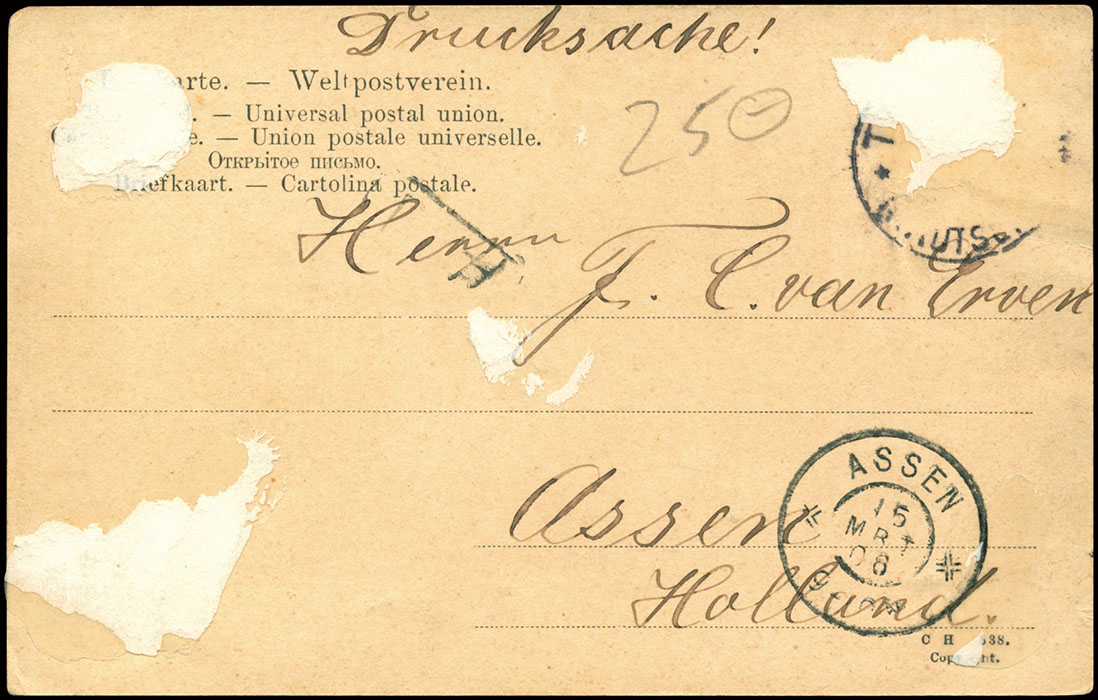 Drucksache!
— Weltpostverein.
— Universal postal union.
— Union postale universelle.
Открытое письмо.
Briefkaart. — Cartolina postale.
250
Herrn F. C. van Erven
Assen
Holland.
ASSEN
15
MRT
06
C H 538.